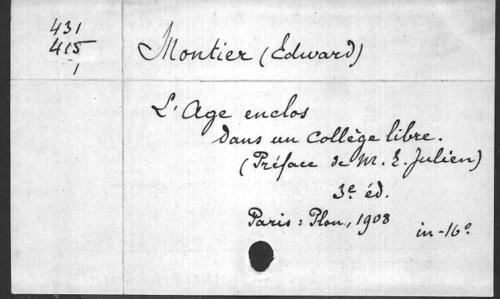 431
415
1
Montier (Edward)
L'Age enclos
dans un collège libre.
(Préface de M. E. Julien)
3e éd.
Paris : Plon, 1908
in-16º